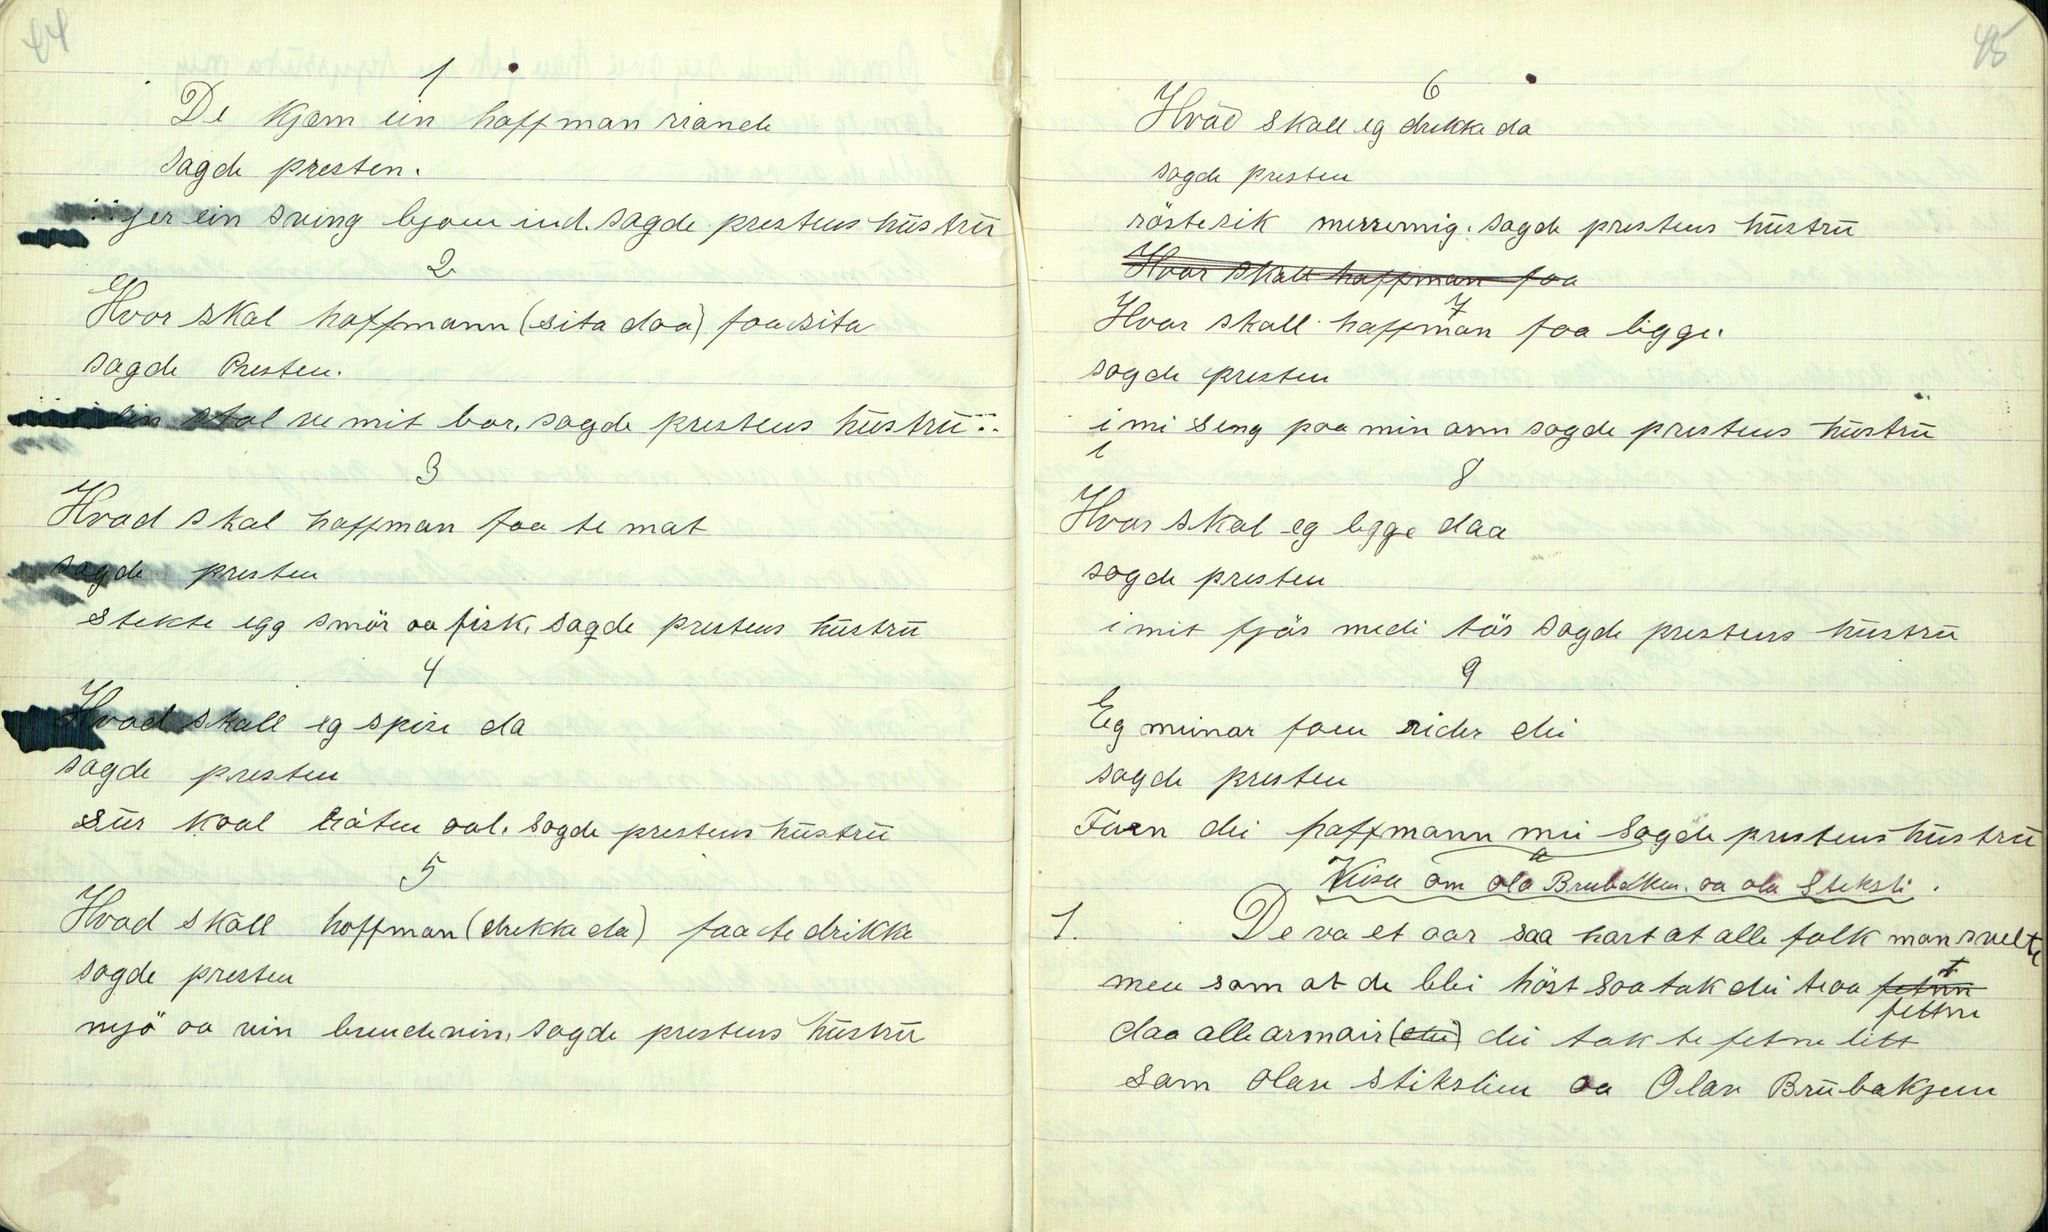 44
1
De kjæm ein hoffman riande
sagde presten.
gjer ein sving bjoen ind. sagde prestens hüstrü
2
Hvor skal hoffmann (sita daa) faa sita
sagde Presten.
ein stol ve mit bor, sagde prestens hüstrü
3
Hvad skal hoffman faa te mat
sagde presten
stekte egg smör oa fisk, sagde prestens hüstrü
4
Hvad skall eg spise da
sagde presten
sür kaal tråten aal. sagde prestens hüstrü
5
Hvad skall hoffman (drekka da) faa te drikke
sagde presten
mjö oa vin brendevin, sagde prestens hüstrü
45
6
Hvad skall eg drekke da
sagde presten
sagde prestens hüstrü
Hvor skall hoffman faa
7
Hvor skall hoffman faa ligge.
sagde presten
i mi seng paa min arm sagde prestens hüstrü
8
Hvor skal eg ligge daa
sagde presten
i mit fjös medi tös sagde prestens hüstrü
9
Eg meinar faen rider dei
sagde presten
Faen dei hoffmann mei sagde prestens hüstrü
Visa om ola Brubakken. oa ola Stiksli.
1. De va et aar saa hart at alle folk mon svelte
men som at de blei höst saa tok dei teaa fetne
daa alle armair (dei) dei tok te fetne litt
som olav stikslien oa Olav Brübakjen